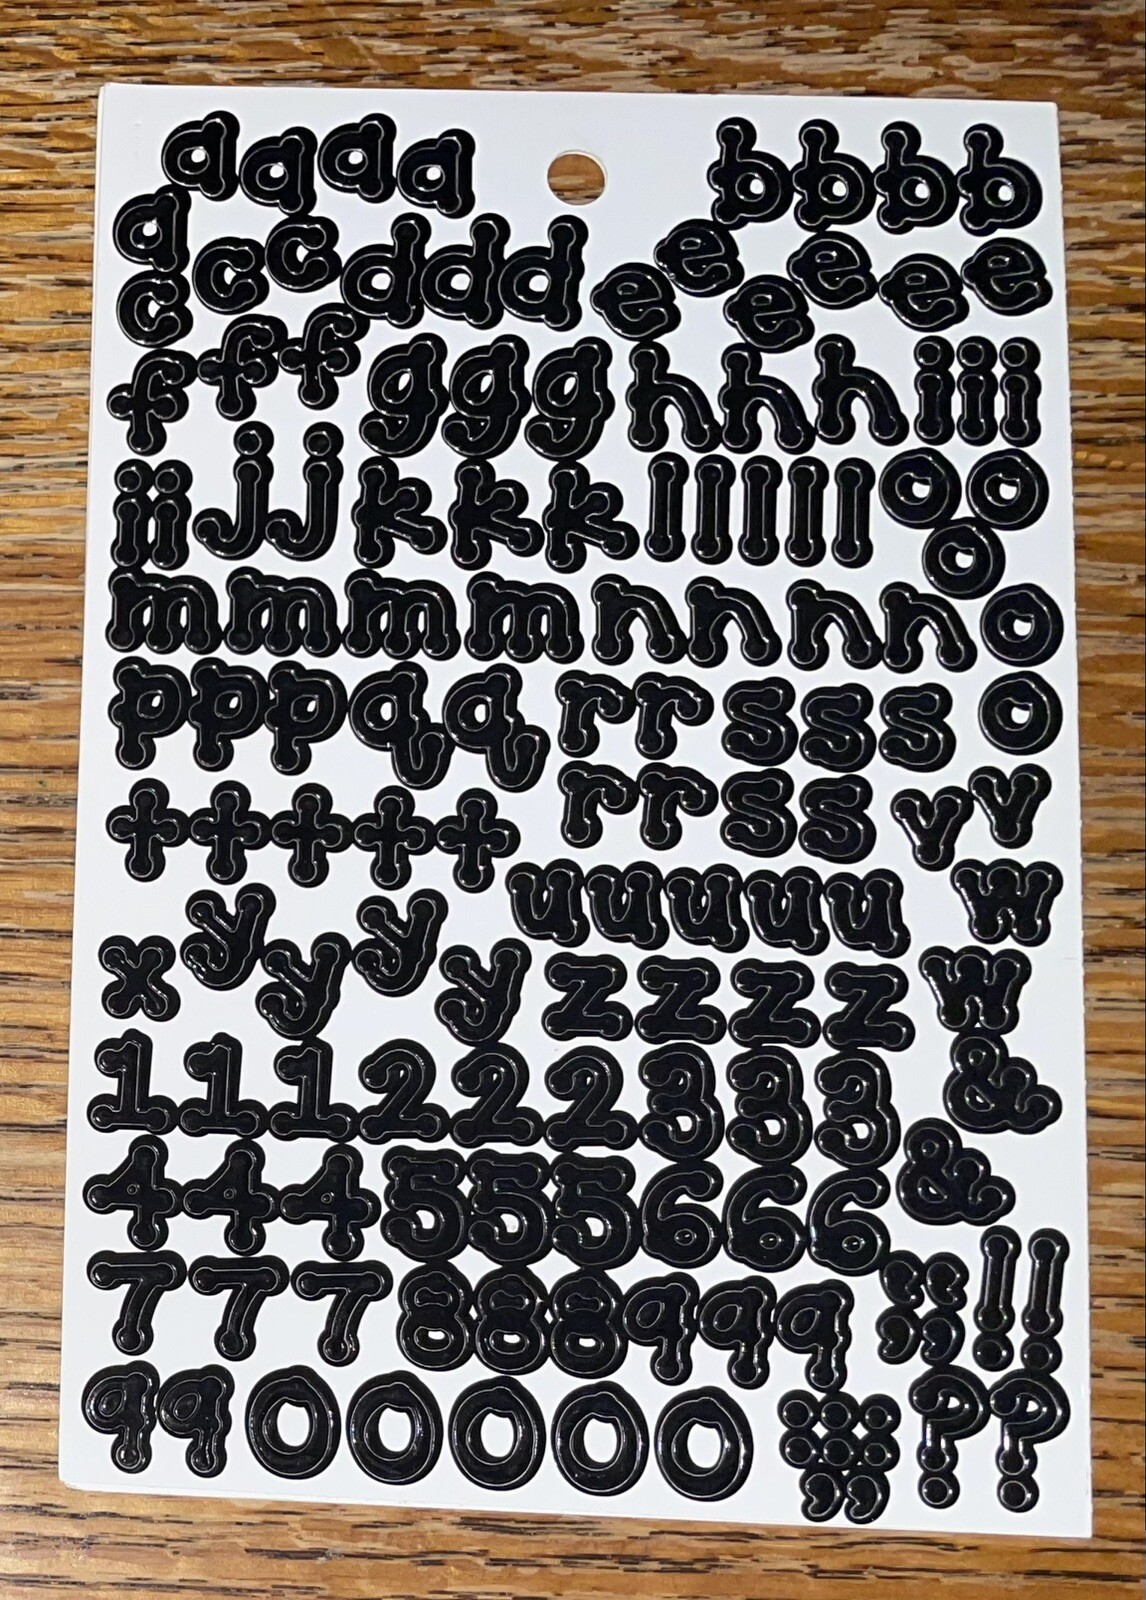 a a a a b b b b
a c c d d d e e e e e e
c f f f g g g h h h i i i
i i j j k k k l l l l l o o
o
m m m m n n n n o
p p p q q r r s s s o
t t t t t r r s s v v
u u u u u w
x y y y y z z z z w
1 1 1 2 2 2 3 3 3 &
4 4 4 5 5 5 6 6 6 &
7 7 7 8 8 8 9 9 9 , , , , ! !
9 9 0 0 0 0 0 . . . . . . ; ; ? ?